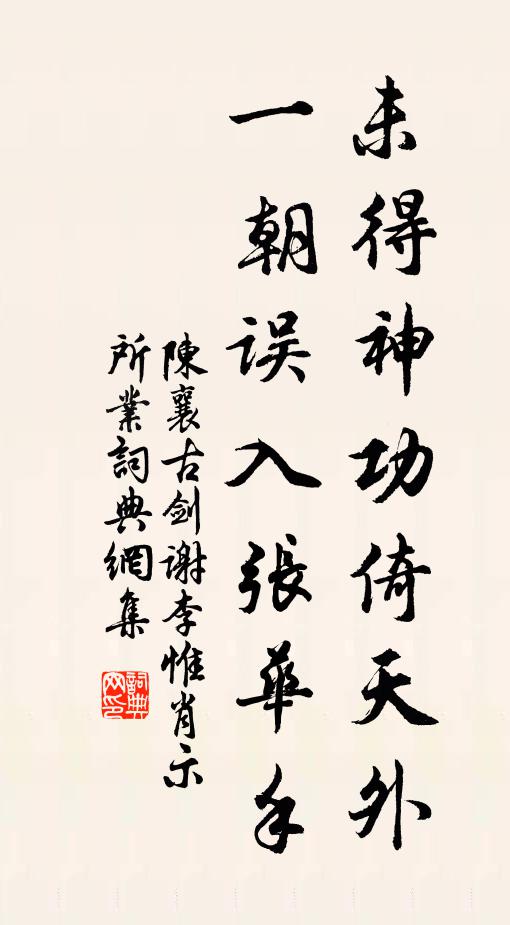 未得神功倚天外
一朝误入張華手
陳襄古劍谢李惟肖示
所業詞典網集
詞典网印